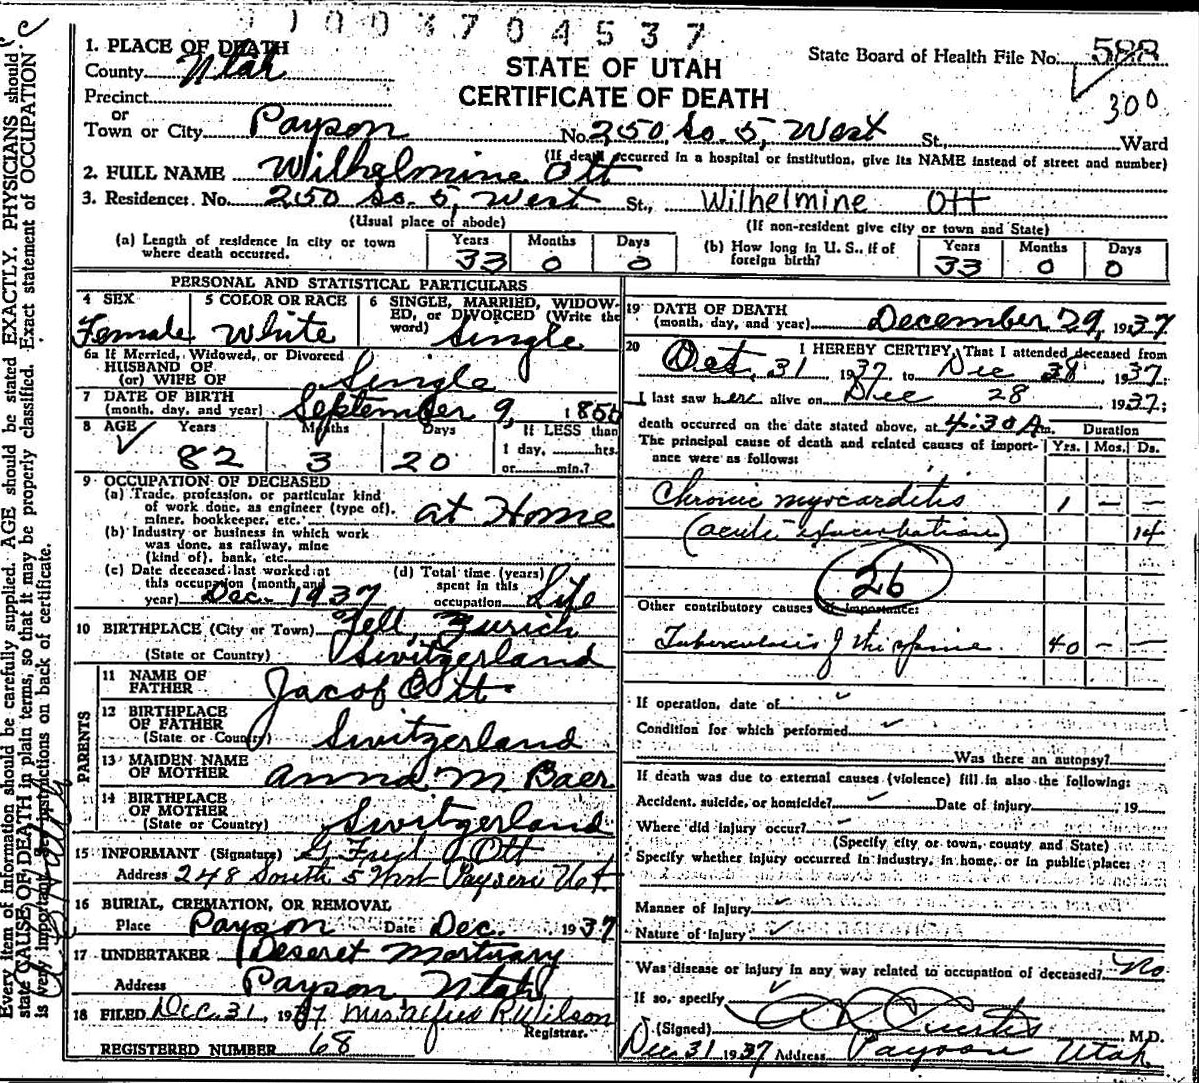 91003704537
1. PLACE OF DEATH
County Utah
Precinct
or
Town or City Payson No. 250 So. 5, West St., Ward
(If death occurred in a hospital or institution, give its NAME instead of street and number)
STATE OF UTAH
CERTIFICATE OF DEATH
State Board of Health File No. 588
300
2. FULL NAME Wilhelmine Ott
3. Residence: No. 250 So. 5, West St., Wilhelmine Ott
(Usual place of abode) (If non-resident give city or town and State)
(a) Length of residence in city or town where death occurred. Years 33 Months 0 Days 0
(b) How long in U. S., if of foreign birth? Years 33 Months 0 Days 0
PERSONAL AND STATISTICAL PARTICULARS
4 SEX Female
5 COLOR OR RACE White
6 SINGLE, MARRIED, WIDOWED, or DIVORCED (Write the word) Single
6a If Married, Widowed, or Divorced
HUSBAND OF
(or) WIFE OF Single
7 DATE OF BIRTH
(month, day, and year) September 9, 185
8 AGE Years 82 Months 3 Days 20 If LESS than 1 day, hrs. or min.?
9 OCCUPATION OF DECEASED
(a) Trade, profession, or particular kind
of work done, as engineer (type of),
miner, bookkeeper, etc. at Home
(b) Industry or business in which work
was done, as railway, mine
(kind of), bank, etc.
(c) Date deceased last worked at
this occupation (month and
year) Dec. 1937
(d) Total time (years)
spent in this
occupation Life
10 BIRTHPLACE (City or Town) Tell, Zurich
(State or Country) Switzerland
PARENTS
11 NAME OF
FATHER Jacob Ott
12 BIRTHPLACE
OF FATHER
(State or Country) Switzerland
13 MAIDEN NAME
OF MOTHER Anna M Baer
14 BIRTHPLACE
OF MOTHER
(State or Country) Switzerland
15 INFORMANT (Signature) G Fred Ott
Address 248 South 5 West Payson Ut.
16 BURIAL, CREMATION, OR REMOVAL
Place Payson Date Dec. 1937
17 UNDERTAKER Deseret Mortuary
Address Payson Utah
18 FILED Dec. 31, 1937 Mrs Alfred R Wilson
Registrar.
REGISTERED NUMBER 68
19 DATE OF DEATH
(month, day, and year) December 29, 1937
20 I HEREBY CERTIFY, That I attended deceased from
Oct. 31 1937 to Dec 28 1937;
I last saw her alive on Dec 28, 1937;
death occurred on the date stated above, at 4:30 Am. Duration
The principal cause of death and related causes of importance were as follows: Yrs. Mos. Ds.
Chronic myocarditis 1 — —
(acute exacerbation) 14
26
Other contributory causes of importance:
Tuberculosis of the spine 40 — —
If operation, date of
Condition for which performed
Was there an autopsy?
If death was due to external causes (violence) fill in also the following:
Accident, suicide, or homicide? Date of injury , 19
Where did injury occur?
(Specify city or town, county and State)
Specify whether injury occurred in industry, in home, or in public place:
Manner of Injury
Nature of Injury
Was disease or injury in any way related to occupation of deceased? No
If so, specify
(Signed) Curtis M.D.
Dec 31 1937 Address Payson Utah
Every item of information should be carefully supplied. AGE should be stated EXACTLY. PHYSICIANS should
state CAUSE OF DEATH in plain terms, so that it may be properly classified. Exact statement of OCCUPATION
is very important. See instructions on back of certificate.